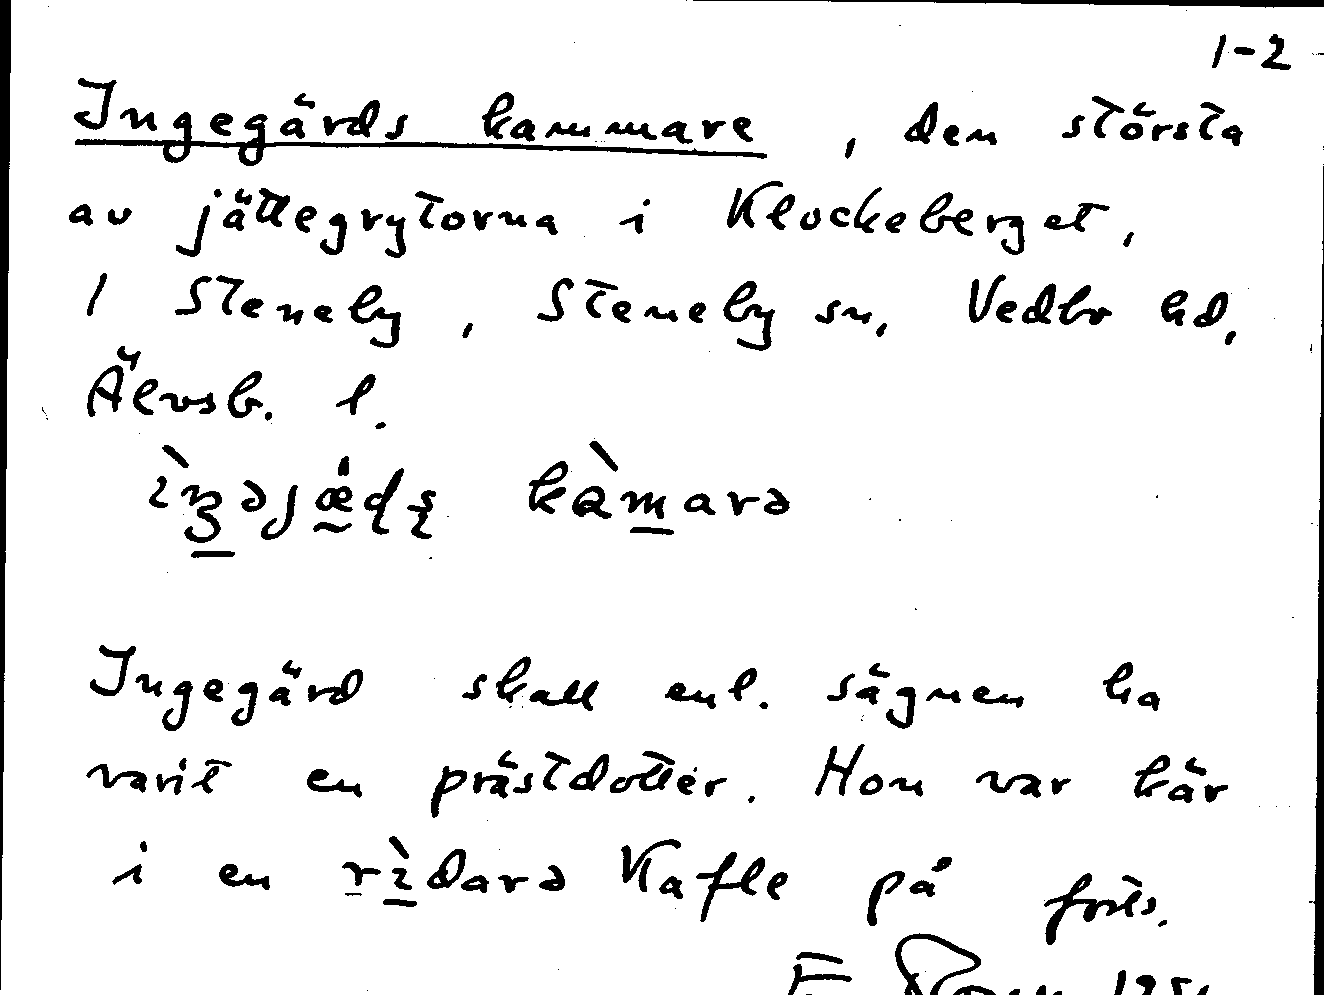 1-2
Ingegärds kammare, den största
av jättegrytorna i Klockeberget,
1 Steneby, Steneby sn, Vedbo hd,
Älvsb. l.
kàmarə
Ingegärd skall enl. sägnen ha
varit en prästdotter. Hon var kär
i en rìdarə Kafle på forts.
E